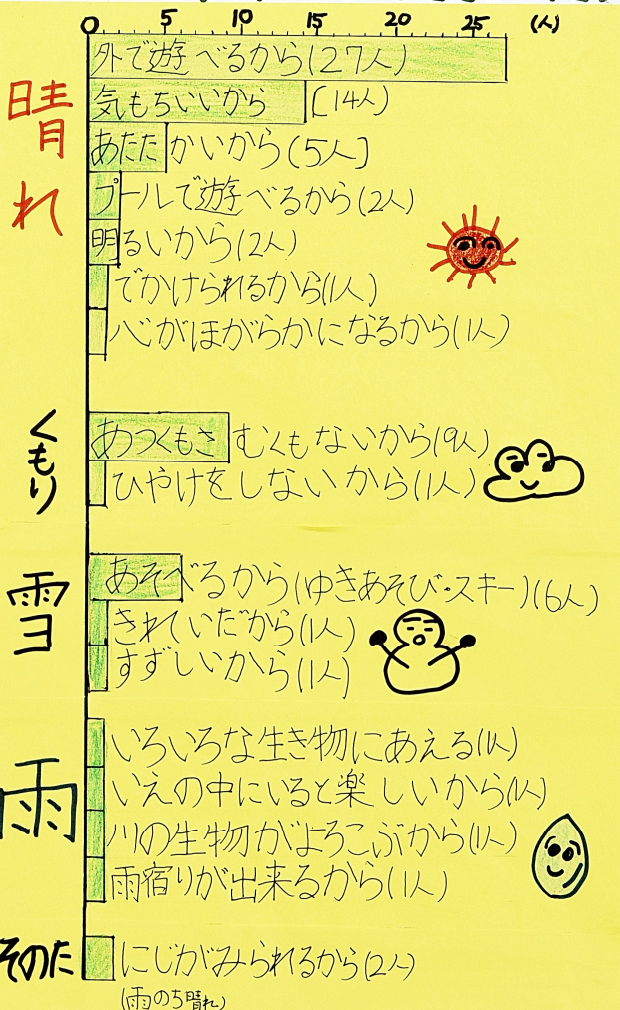 0 5 10 15 20 25 (人)
晴れ
外で遊べるから(27人)
気もちいいから [14人)
あたたかいから(5人]
プールで遊べるから(2人)
明るいから(2人)
でかけられるから(1人)
心がほがらかになるから(1人)
くもり
あつくもさむくもないから(9人)
ひやけをしないから(1人)
雪
あそべるから(ゆきあそび・スキー)(6人)
きれいだから(1人)
すずしいから(1人)
雨
いろいろな生き物にあえる(1人)
いえの中にいると楽しいから(1人)
川の生物がよろこぶから(1人)
雨宿りが出来るから(1人)
そのた
にじがみられるから(2人)
(雨のち晴れ)